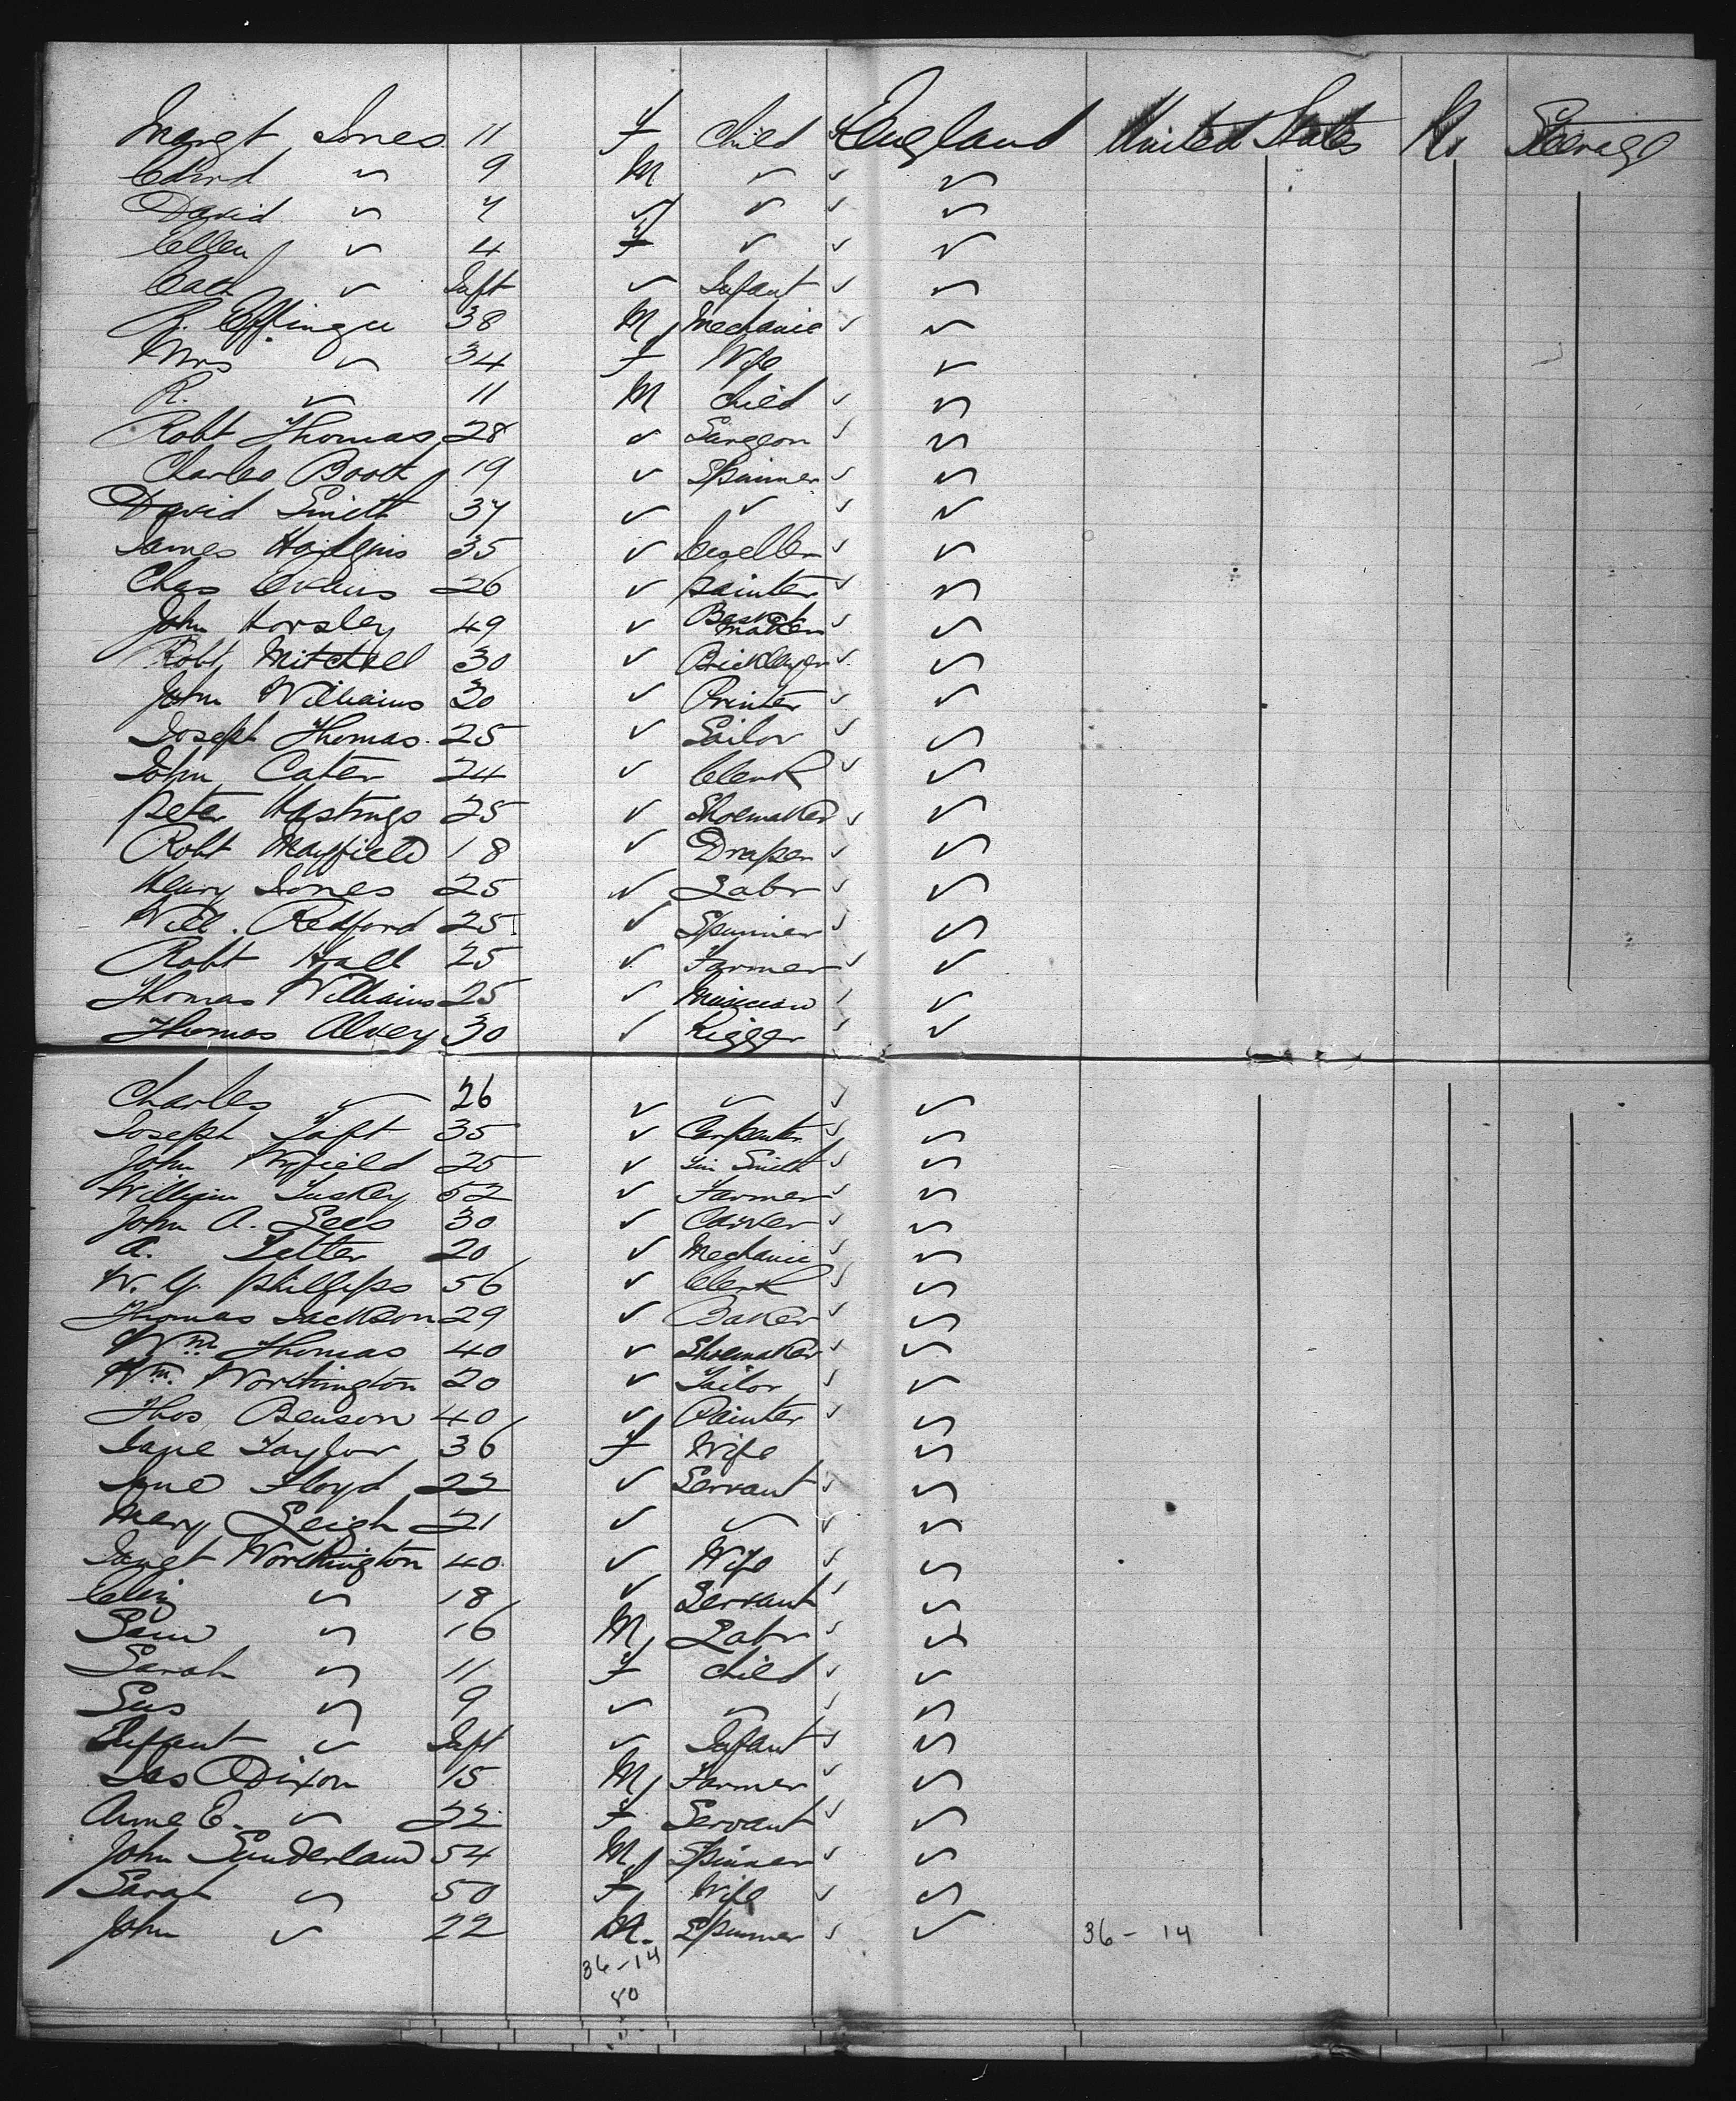 Margt Jones 11 F Child England United States No Steerage
Edwd " 9 M " "
David " 7 " " "
Ellen " 4 F " "
" Inft " Infant "
R. Effinger 38 M Mechanic "
Mrs " 34 F Wife "
R. " 11 M Child "
Robt Thomas 28 " Surgeon "
Charles Booth 19 " Spinner "
David Smith 37 " " "
James Hodgins 35 " Jeweller "
Chas Evans 26 " painter "
John Horsley 49 " Basket maker "
Robt Mitchell 30 " Bricklayer "
John Williams 30 " Printer "
Joseph Thomas 25 " Sailor "
John Cater 24 " Clerk "
peter Hastings 25 " Shoemaker "
Robt Mayfield 18 " Draper "
Henry Jones 25 " Labr "
Will. Redford 25 " Spinner "
Robt Hall 25 " Farmer "
Thomas Williams 25 " Musician "
Thomas Alvey 30 " Rigger "
Charles " 26 " " "
Joseph Taft 35 " Carpenter "
John Wyfield 25 " Tin Smith "
William Luskey 52 " Farmer "
John A. Lees 30 " Carver "
A. 20 " Mechanic "
W. Y. phillips 56 " Clerk "
Thomas Jackson 29 " Baker "
Wm Thomas 40 " Shoemaker "
Wm. Worthington 20 " Tailor "
Thos Benson 40 " Painter "
Jane Taylor 36 F Wife "
Jane Floyd 22 " Servant "
Mary Leigh 21 " " "
Janet Worthington 40 " Wife "
" 18 " Servant "
Sam " 16 M Labr "
Sarah " 11 F child "
Sus " 9 " " "
Infant " Inft " Infant "
Jas Dixon 15 M Farmer "
Anne E. " 22 F Servant "
John Sunderland 54 M Spinner "
Sarah " 50 F Wife "
John " 22 M. Spinner " 36 - 14
36-14
80